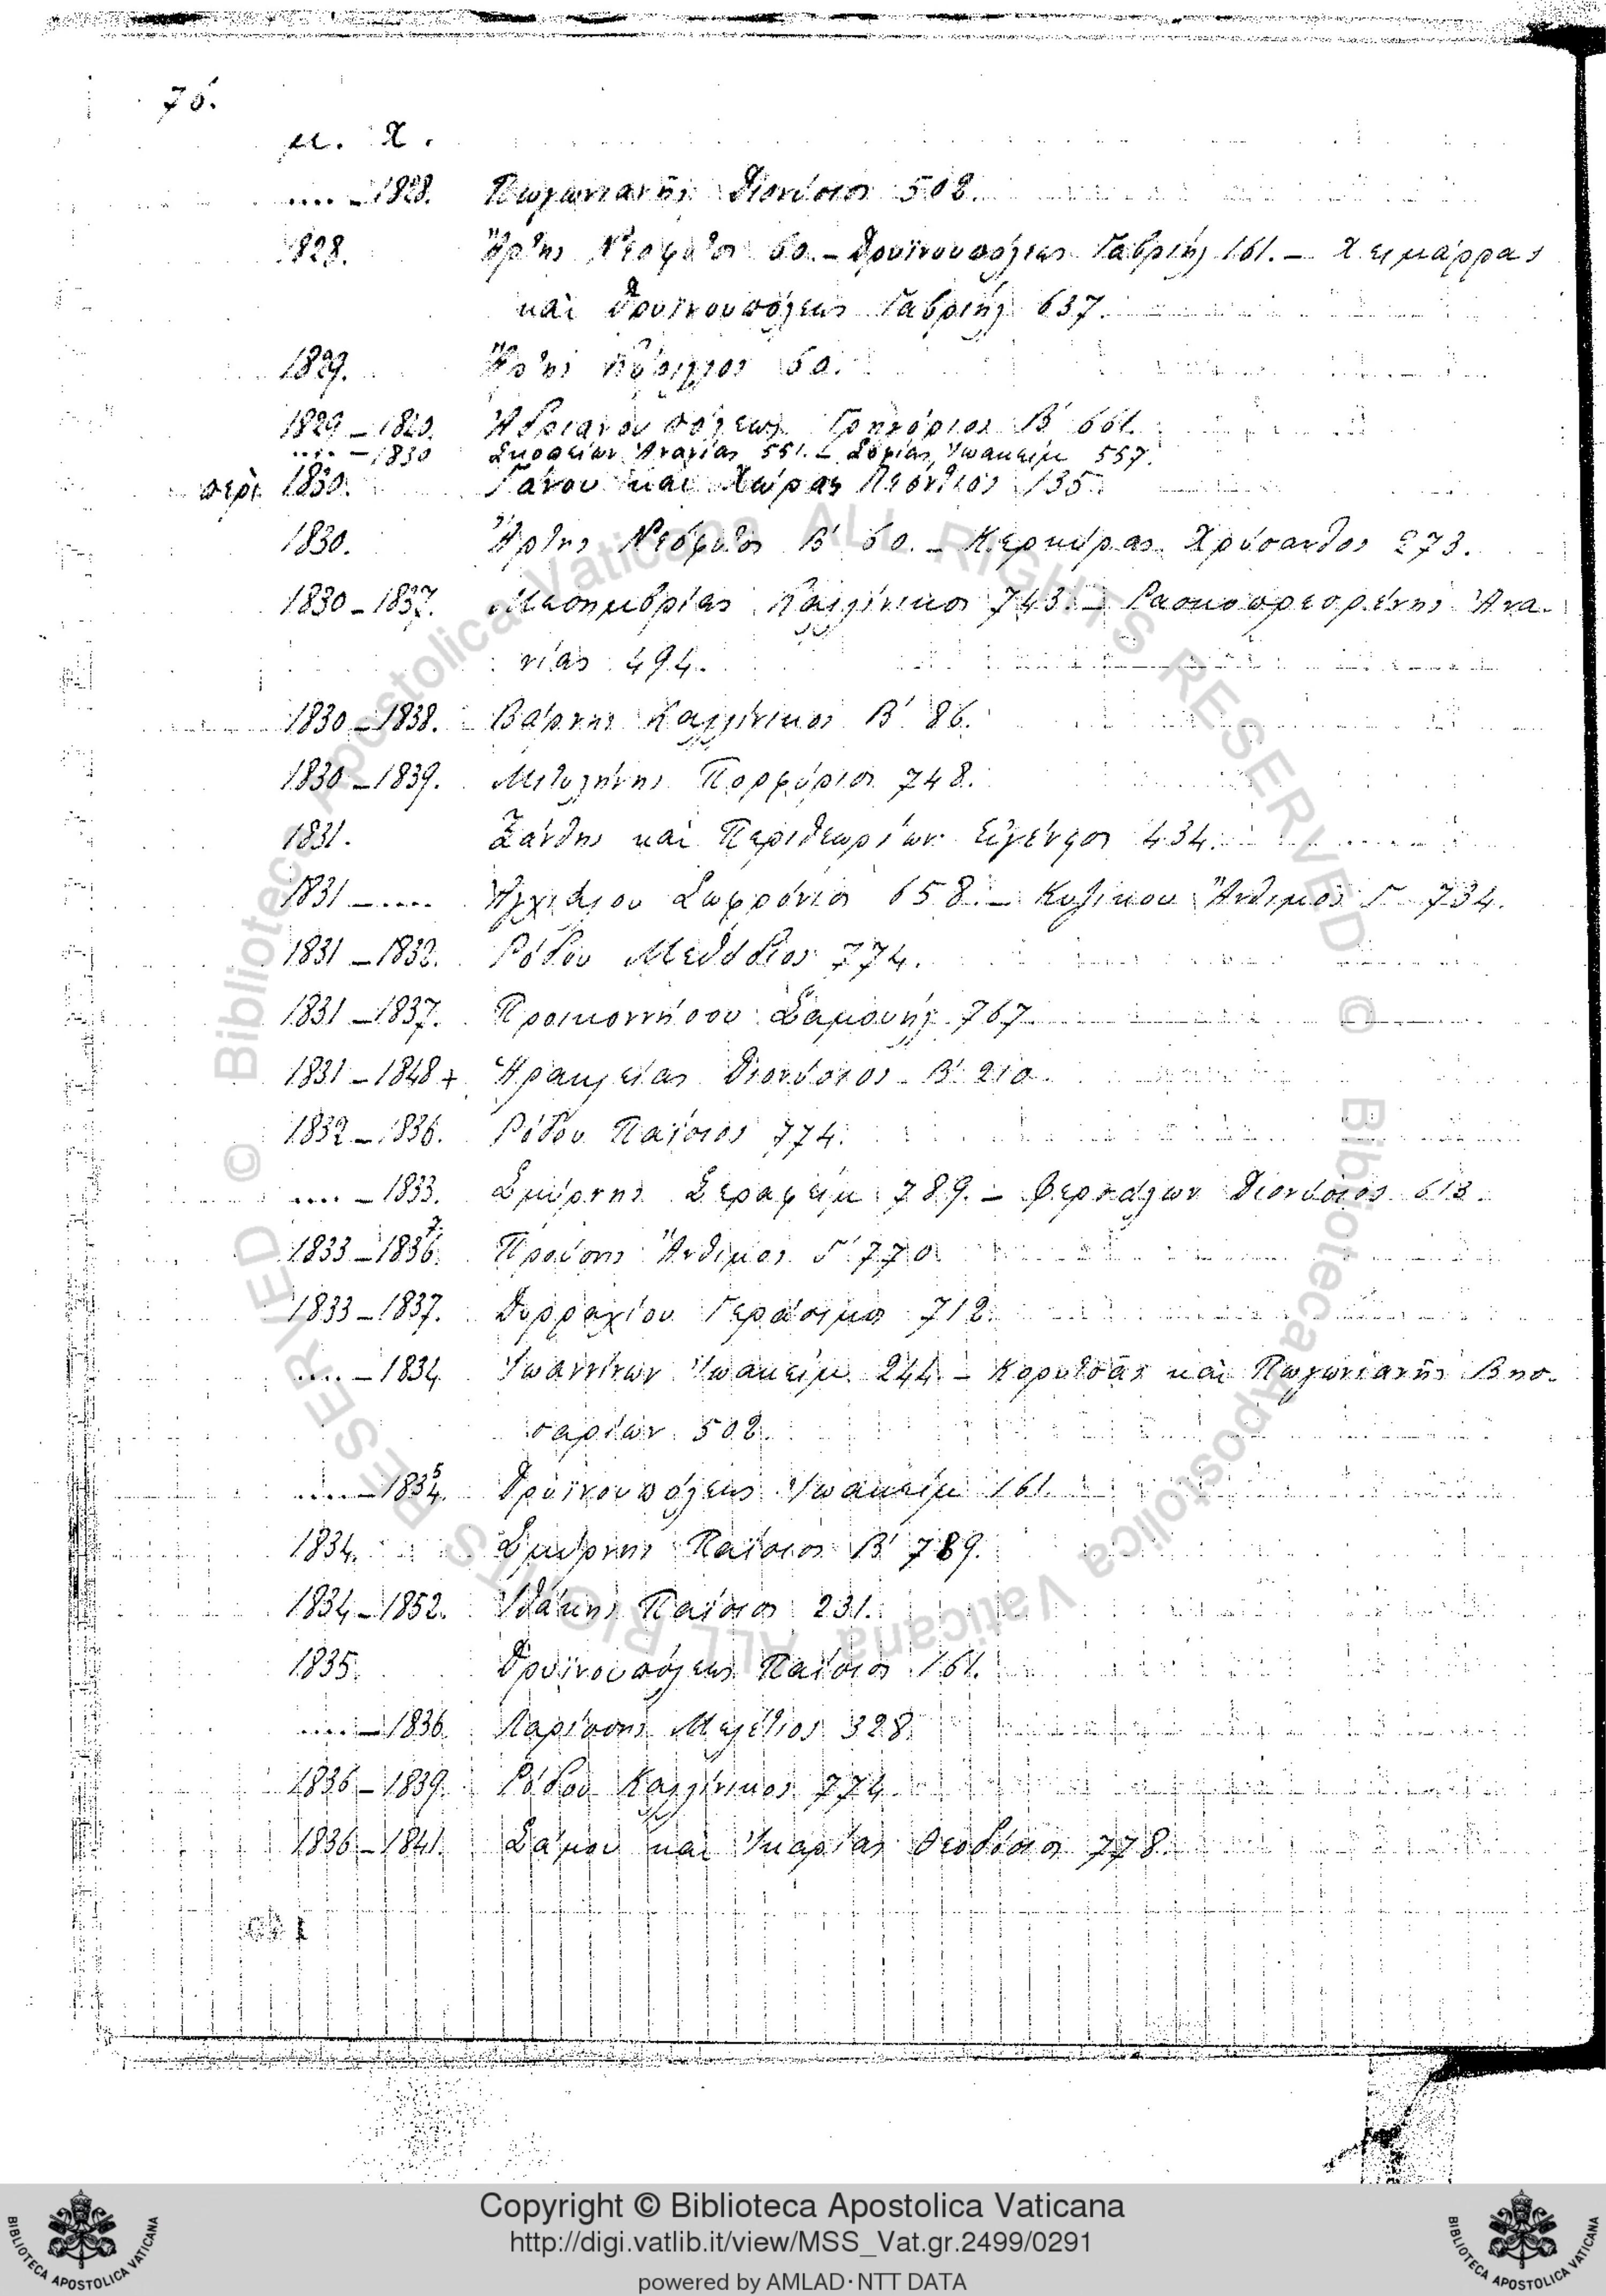 76.
μ. Χ.
.... – 1828. Πωγωνιανῆς Διονύσιος 502.
1828. Ἄρτης Νεόφυτος 60. – Δρυϊνουπόλεως Γαβριὴλ 161. – Χειμάρρας
καὶ Δρυϊνουπόλεως Γαβριὴλ 637.
1829. Ἄρτης Κύριλλος 60.
1829 – 1830. Ἀδριανουπόλεως Γρηγόριος Β΄ 661.
.... – 1830 Σκοπείων Ἀνανίας 551. – Σόφιας Ἰωακεὶμ 557.
περὶ 1830. Γάνου καὶ Χώρας Λεόντιος 135.
1830. Ἄρτης Νεόφυτος Β΄ 60. – Κερκύρας Χρύσανθος 273.
1830 – 1837. Μεσημβρίας Καλλίνικος 743. – Ρασκοπρεσρένης Ἀνα-
νίας 494.
1830 – 1838. Βάρνης Καλλίνικος Β΄ 86.
1830 – 1839. Μιτυλήνης Πορφύριος 748.
1831. Ξάνθης καὶ Περιθεωρίων Εὐγένιος 434.
1831 – .... Ἀγχιάλου Σωφρόνιος 658. – Κυζίκου Ἄνθιμος 734.
1831 – 1832. Ρόδου Μεθόδιος 774.
1831 – 1837. Προικοννήσου Σαμουὴλ 767
1831 – 1848 + Ἡρακλείας Διονύσιος Β΄ 210.
1832 – 1836. Ρόδου Παΐσιος 774.
.... – 1833. Σμύρνης Σεραφεὶμ 789. – Φερσάλων Διονύσιος 613.
1833 – 1836. 7. Προύσης Ἄνθιμος 770
1833 – 1837. Δυρραχίου Γεράσιμος 712.
.... – 1834 Ἰωαννίνων Ἰωακεὶμ 244 – Κορυτσᾶς καὶ Πωγωνιανῆς Βησ-
σαρίων 502.
.... – 1834. 5 Δρυϊνουπόλεως Ἰωακεὶμ 161.
1834. Σμύρνης Παΐσιος Β΄ 789.
1834 – 1852. Ἰθάκης Παΐσιος 231.
1835. Δρυϊνουπόλεως Παΐσιος 161.
.... – 1836. Λαρίσσης Μελέτιος 328.
1836 – 1839. Ρόδου Καλλίνικος 774
1836 – 1841. Σάμου καὶ Ἰκαρίας Θεοδόσιος 778.
Copyright © Biblioteca Apostolica Vaticana
http://digi.vatlib.it/view/MSS_Vat.gr.2499/0291
powered by AMLAD·NTT DATA